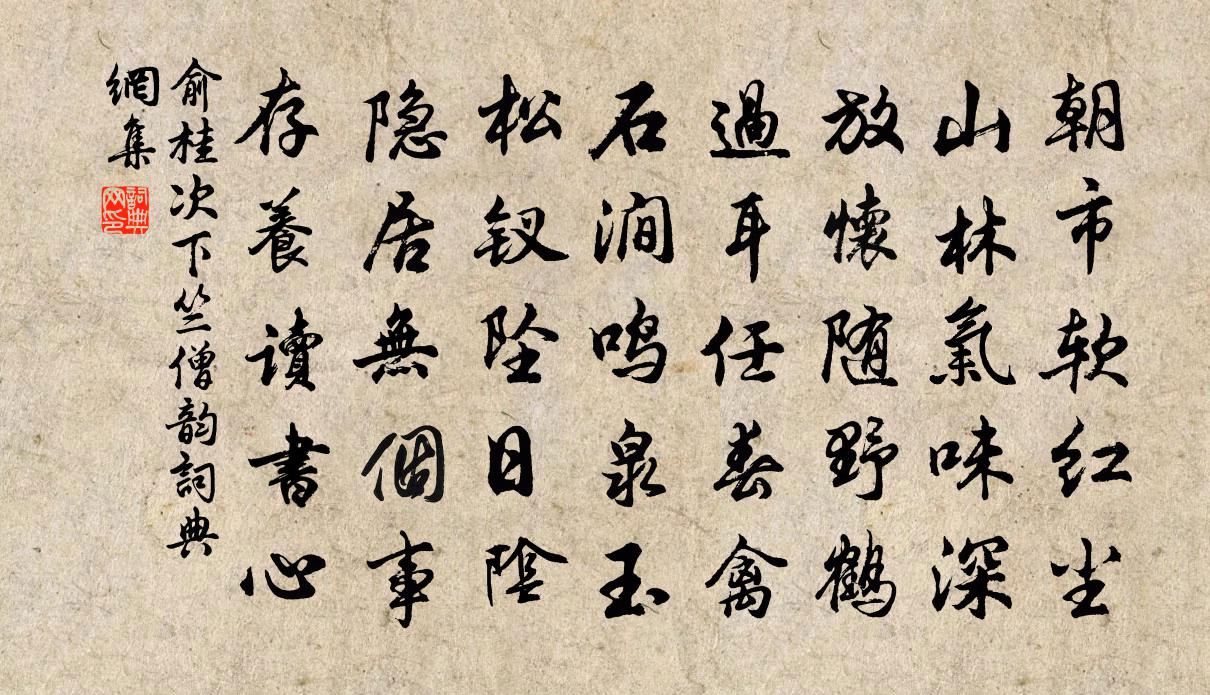 朝市软红尘
山林氣味深
放懷随野鹤
過耳任春禽
石澗鸣泉玉
松钗坠日陰
隐居無個事
存養讀書心
俞桂次下竺僧韵詞典
網集
詞典網印